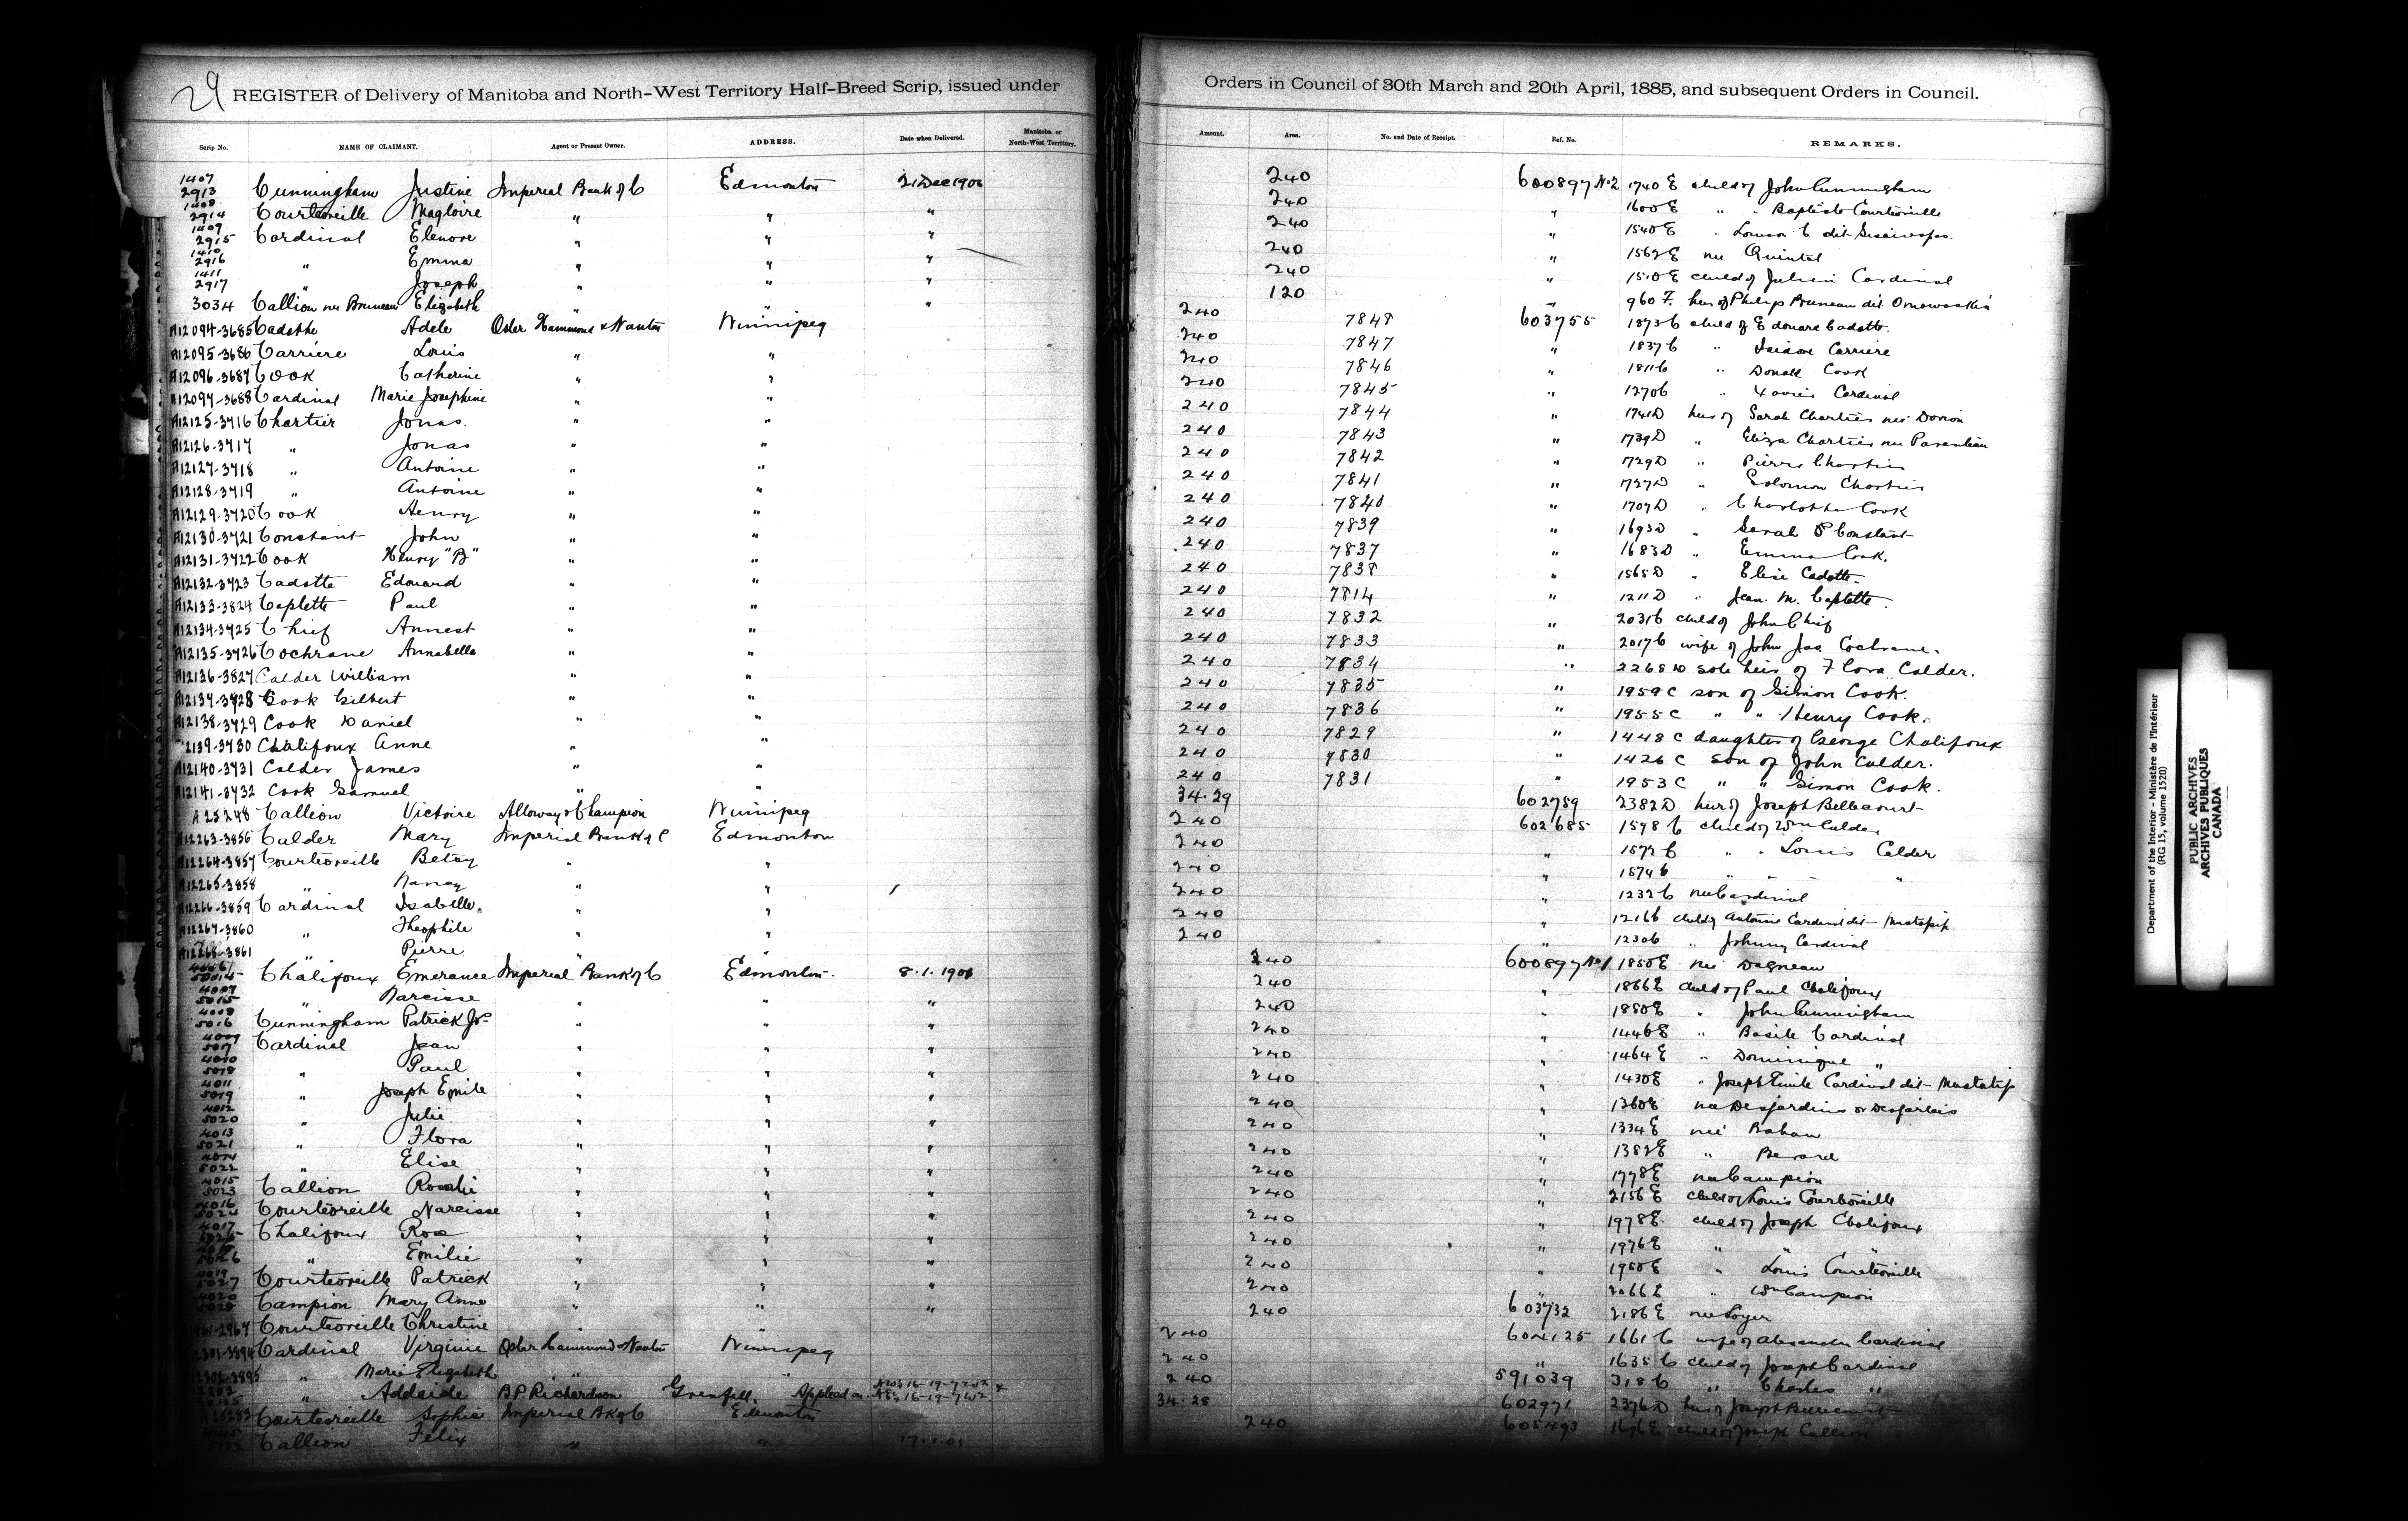 29 REGISTER of Delivery of Manitoba and North-West Territory Half-Breed Scrip, issued under Orders in Council of 30th March and 20th April, 1885, and subsequent Orders in Council.
Scrip No. NAME OF CLAIMANT. Agent or Present Owner. ADDRESS. Date when Delivered. Manitoba or North-West Territory. Amount. Area. No. and Date of Receipt. Ref. No. REMARKS.
1407 2913 Cunningham Justine Imperial Bank of C Edmonton 21 Dec 1900 240 600897 No 2 1740 E child of John Cunningham
1408 2914 Courteoreille Magloire " " " 240 " 1600 E " " Baptiste Courteoreille
1409 2915 Cardinal Elenore " " " 240 " 1540 E " Louison C dit
1410 2916 " Emma " " " 240 " 1562 E nee Quintal
1411 2917 " Joseph " " " 240 " 1510 E child of Julien Cardinal
3034 Callion nee Bruneau Elizabeth " " " 120 " 960 F. heir of Philip Bruneau dit
A12094-3685 Cadotte Adele Osler Hammond & Nanton Winnipeg 240 7848 603755 1873 C child of Edouard Cadotte
A12095-3686 Carriere Louis " " 240 7847 " 1837 C " Isidore Carriere
A12096-3687 Cook Catherine " " 240 7846 " 1811 C " Donald Cook
A12097-3688 Cardinal Marie Josephine " " 240 7845 " 1270 C " Xavier Cardinal
A12125-3716 Chartier Jonas " " 240 7844 " 1741 D heir of Sarah Chartier nee Dorion
A12126-3717 " Jonas " " 240 7843 " 1739 D " Eliza Chartier nee Parenteau
A12127-3718 " Antoine " " 240 7842 " 1729 D " Pierre Chartier
A12128-3719 " Antoine " " 240 7841 " 1727 D " Solomon Chartier
A12129-3720 Cook Henry " " 240 7840 " 1707 D " Charlotte Cook
A12130-3721 Constant John " " 240 7839 " 1693 D " Sarah Constant
A12131-3722 Cook Henry "B" " " 240 7837 " 1683 D " Emma Cook.
A12132-3723 Cadotte Edouard " " 240 7838 " 1565 D " Elise Cadotte.
A12133-3824 Caplette Paul " " 240 7814 " 1211 D " Jean. M. Caplette.
A12134-3725 Chief Annest " " 240 7832 " 2031 C child of John Chief
A12135-3726 Cochrane Annabella " " 240 7833 " 2017 C wife of John Jas Cochrane.
A12136-3827 Calder William " " 240 7834 " 2268 D sole heir of Flora Calder.
A12137-3728 Cook Gilbert " " 240 7835 " 1959 C son of Simon Cook.
A12138-3729 Cook Daniel " " 240 7836 " 1955 C " " Henry Cook.
2139-3730 Chalifoux Anne " " 240 7829 " 1448 C daughter of George Chalifoux
A12140-3731 Calder James " " 240 7830 " 1426 C son of John Calder.
A12141-3732 Cook Samuel " " 240 7831 " 1953 C " " Simon Cook.
A 25248 Callion Victoire Alloway & Champion Winnipeg 34.29 602789 2382 D heir of Joseph Bellecourt
A12263-3856 Calder Mary Imperial Bank of C Edmonton 240 602685 1598 C child of Wm Calder
A12264-3857 Courteoreille Betsy " " 240 " 1572 C " " Louis Calder
A12265-3858 " Nancy " " 240 " 1574 C " " "
A12266-3859 Cardinal Isabelle " " 240 " 1232 C nee Cardinal
A12267-3860 " Theophile " " 240 " 1216 C child of Antoine Cardinal dit Mustatip
A12268-3861 " Pierre " " 240 " 1230 C " Johnny Cardinal
Chalifoux Emerance Imperial Bank of C Edmonton. 8.1.1901 240 600897 No 1 1850 E nee Dagneau
4007 5015 " Narcisse " " " 240 " 1866 E child of Paul Chalifoux
4008 5016 Cunningham Patrick Jr " " " 240 " 1880 E " John Cunningham
4009 5017 Cardinal Jean " " " 240 " 1446 E " Basile Cardinal
4010 5018 " Paul " " " 240 " 1464 E " Dominique "
4011 5019 " Joseph Emile " " " 240 " 1430 E " Joseph Emile Cardinal dit Mustatip
4012 5020 " Julie " " " 240 " 1360 E nee Desjardins or Desjarlais
4013 5021 " Flora " " " 240 " 1334 E nee
4014 5022 " Elise " " " 240 " 1382 E " Berard
4015 5023 Callion Rosalie " " " 240 " 1778 E nee Campion
4016 5024 Courteoreille Narcisse " " " 240 " 2156 E child of Louis Courteoreille
4017 5025 Chalifoux Rose " " " 240 " 1978 E child of Joseph Chalifoux
5026 " Emilie " " " 240 " 1976 E " " "
4019 5027 Courteoreille Patrick " " " 240 " 1980 E " Louis Courteoreille
4020 5028 Campion Mary Anne " " " 240 " 2066 E " Wm Campion
Courteoreille Christine " " 240 603732 2186 E nee Loyer
Cardinal Virginie Osler Hammond & Nanton Winnipeg 240 604125 1661 C wife of Alexander Cardinal
" Marie Elizabeth " " 240 " 1635 C child of Joseph Cardinal
" Adelaide B.P. Richardson Grenfell. Applied on 16-17-7 W2 240 591039 318 C " Charles "
Courteoreille Sophie Imperial Bk of C Edmonton 34.28 602971 2376 D heir of Joseph Bellecourt
Callion Felix " " 240 605493 1676 E child of Joseph Callion
Department of the Interior - Ministère de l'Intérieur
(RG 15, volume 1520)
PUBLIC ARCHIVES
ARCHIVES PUBLIQUES
CANADA